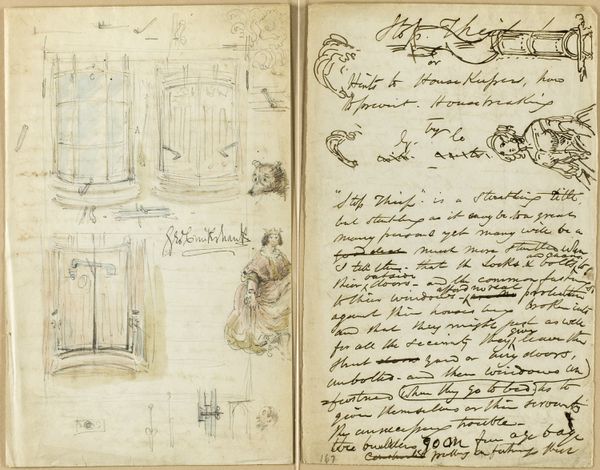 Geo Cruikshank
Stop. Thief
or
Hints to HouseKeepers, how
to prevent. Housebreaking
By.
"Stop Thief" is a startling title
but startling as it may be to a great
many persons yet many will be a
much more startled when
I tell them that the locks & bolts to
their doors - and the common
to their windows - afford no real protection
against their houses being broken into
and that they might just as well
for all the security they give leave their
street yard or airy doors,
unbolted - and their windows un
fastened when they go to bed as to
give themselves or their servants
the unnecessary trouble -
The builders go on from age to age
putting or fastening their
167